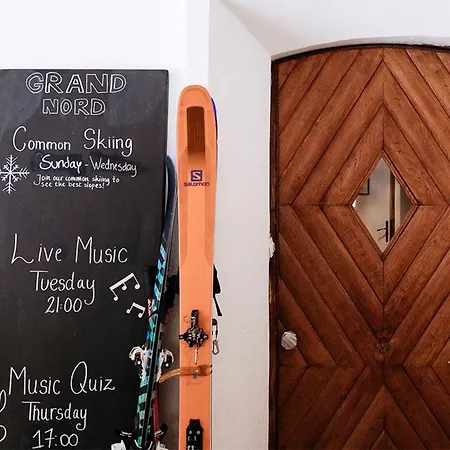 GRAND
NORD
Common Skiing
Sunday - Wednesday
Join our common skiing to
see the best slopes!
Live Music
Tuesday
21:00
Music Quiz
Thursday
17:00
S
SALOMON